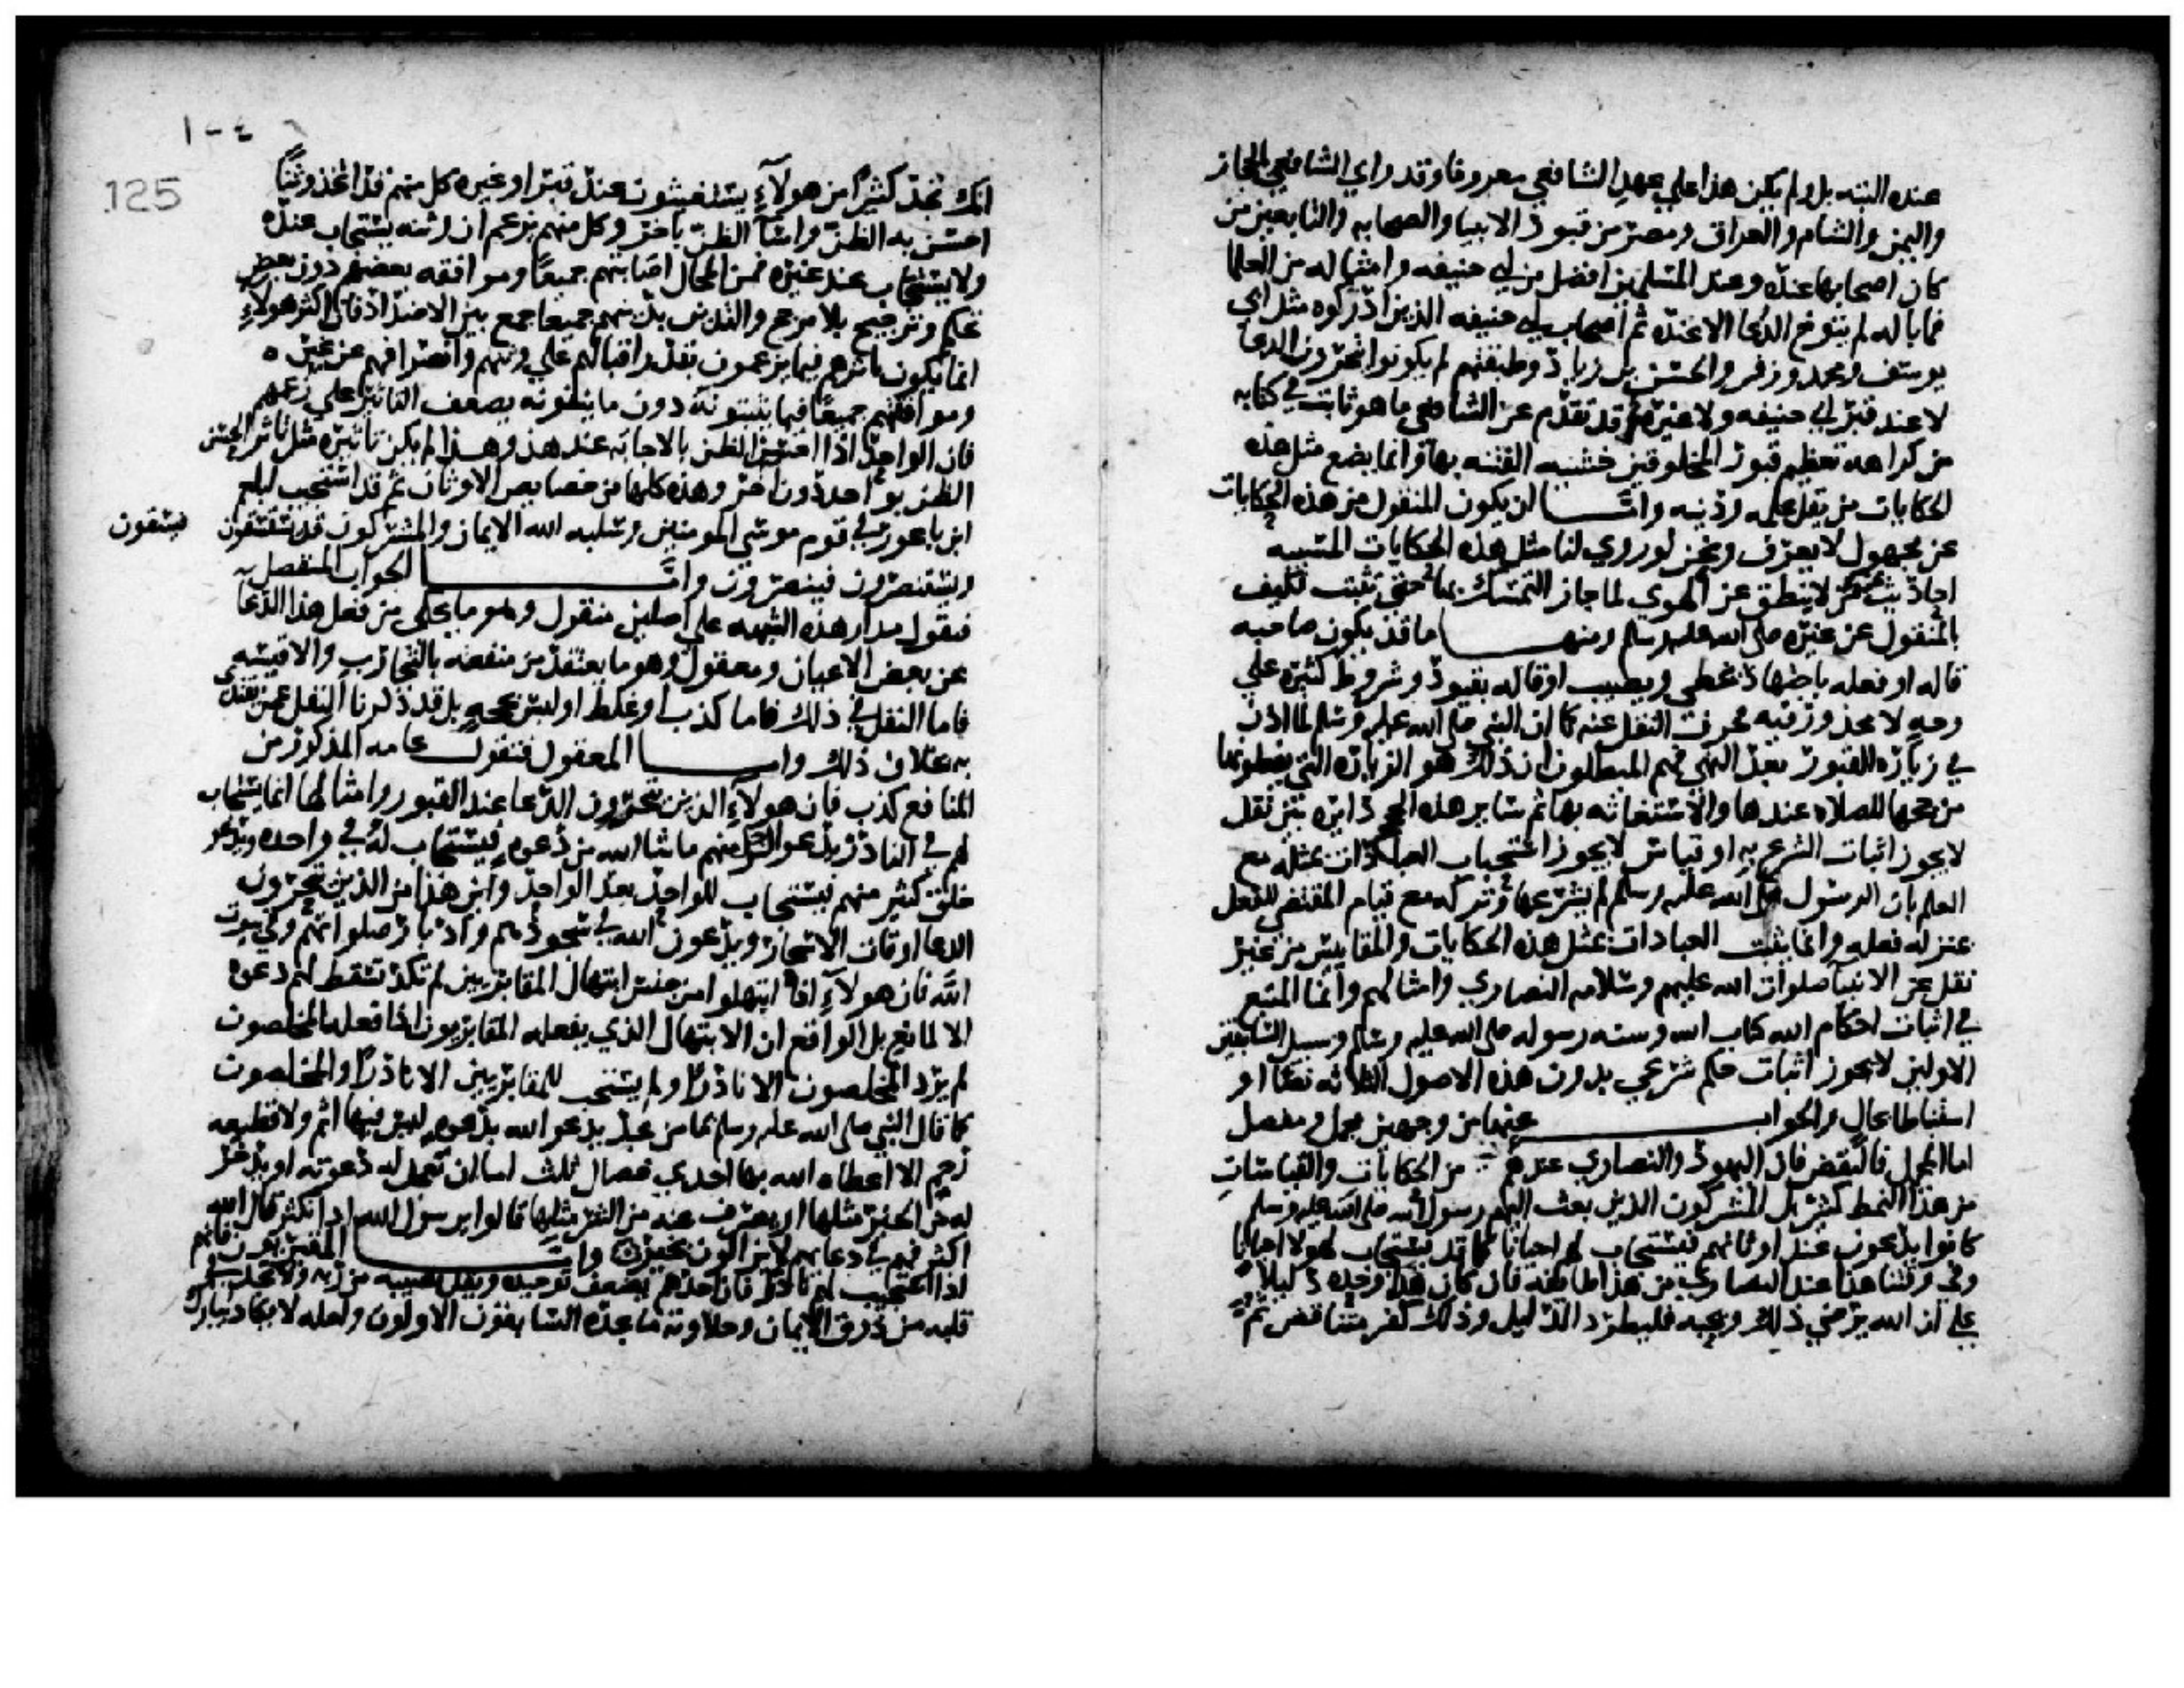 عنده البته بل ولم يكن هذا علي عهد الشافعي معروفا وقد راي الشافعي بالحجاز
واليمن والشام والعراق ومصر من قبور الانبيا والصحابه والتابعين من
كان اصحابها عنده وعند المسلمين افضل من ابي حنيفه وامثاله من العلما
فما باله لم يتوخ الدعا الا عنده ثم اصحاب ابي حنيفه الذين ادركوه مثل ابي
يوسف ومحمد وزفر والحسن بن زياد وطبقتهم لم يكونوا يتحرون الدعا
لا عند قبر ابي حنيفه ولا غيره ثم قد تقدم عن الشافعي ما هو ثابت في كتابه
من كراهه تعظيم قبور المخلوقين خشيه الفتنه بها وانما يضع مثل هذه
الحكايات من يقل علمه ودينه واما ان يكون المنقول من هذه الحكايات
عن مجهول لا يعرف ونحن لو روي لنا مثل هذه الحكايات المسيبه
احاديث عمن لا ينطق عن الهوي لما جاز التمسك بها حتي تثبت فكيف
بالمنقول عن غيره صلى الله عليه وسلم ومنها ما قد يكون صاحبه
قاله او فعله باجتهاد يخطي ويصيب او قاله بقيود وشروط كثيره علي
وجه لا محذور فيه فحرف النقل عنه كما ان النبي صلى الله عليه وسلم لما اذن
في زياره القبور بعد النهي فهم المبطلون ان ذلك هو الزياره التي يفعلونها
من حجها للصلاه عندها والاستغاثه بها ثم ساير هذه الحجج دايره بين نقل
لا يجوز اثبات الشرع به او قياس لا يجوز استحباب العبادات بمثله مع
العلم بان الرسول صلى الله عليه وسلم لم يشرعها وتركه مع قيام المقتضي للفعل
بمنزله فعله وانما يثبت العبادات بمثل هذه الحكايات والمقاييس من غير
نقل عن الانبيا صلوات الله عليهم وسلامه النصاري وامثالهم وانما المتبع
في اثبات احكام الله كتاب الله وسنه رسوله صلى الله عليه وسلم وسبيل السابقين
الاولين لا يجوز اثبات حكم شرعي بدون هذه الاصول الثلاثه نصا او
استنباطا بحال والجواب عنها من وجهين مجمل ومفصل
اما المجمل فالنقض فان اليهود والنصاري عندهم من الحكايات والقياسات
من هذا النمط كثير بل المشركون الذين بعث اليهم رسول الله صلى الله عليه وسلم
كانوا يدعون عند اوثانهم فيستجاب لهم احيانا كما قد يستجاب لهولا احيانا
وفي وقتنا هذا عند النصاري من هذا طايفه فان كان هذا وحده دليلا
علي ان الله يرضي ذلك ويحبه فليطرد الدليل وذلك كفر متناقض ثم
١٠٤
125
انك تجد كثيرا من هولاء يستغيثون عند قبر او غيره كل منهم قد اتخذ وثنا
احسن به الظن واسآ الظن باخر وكل منهم يزعم ان وثنه يستجاب عنده
ولا يستجاب عند غيره فمن المحال اصابتهم جميعا وموافقه بعضهم دون بعض
تحكم وترجيح بلا مرجح والتدين بدينهم جميعا جمع بين الاضداد فان اكثر هولاء
انما يكون تاثرهم فيما يزعمون بقدر اقبالهم علي وثنهم وانصرافهم عن غيره
وموافقتهم جميعا فيما يثبتونه دون ما ينفونه يضعف التاثير علي زعمهم
فان الواحد اذا احسن الظن بالاجابه عند هذا وهذا لم يكن تاثيره مثل تاثير الحسن
الظن بواحد دون اخر وهذه كلها من خصايص الاوثان ثم قد استجيب لبلعم
ابن باعور في قوم موسي المومنين وسلبه الله الايمان والمشركون قد يستسقون فيسقون
ويستنصرون فينصرون واما الجواب المفصل
فنقول مدار هذه الشبهه علي اصلين منقول وهو ما يحكي من فعل هذا الدعا
عن بعض الاعيان ومعقول وهو ما يعتقد من منفعته بالتجارب والاقيسه
فاما النقل في ذلك فاما كذب او غلط او ليس بحجه بل قد ذكرنا النقل عمن يقتدي
به بخلاف ذلك واما المعقول فنقول عامه المذكور من
المنافع كذب فان هولاء الذين يتحرون الدعا عند القبور وامثالها انما يستجاب
لهم في النادر يدعو الرجل منهم ما شا الله من دعوه فيستجاب له في واحده ويدعو
خلق كثير منهم فيستجاب للواحد بعد الواحد واين هذا من الذين يتحرون
الدعا اوقات الاسحار ويدعون الله في سجودهم وادبار صلواتهم وفي بيوت
الله فان هولآء اذا ابتهلوا من جنس ابتهال المقابريين لم تكد تسقط لهم دعوه
الا لمانع بل الواقع ان الابتهال الذي يفعله المقابريون اذا فعله المخلصون
لم يرد المخلصون الا نادرا ولم يستجب للمقابريين الا نادرا والمخلصون
كما قال النبي صلى الله عليه وسلم ما من عبد يدعو الله بدعوه ليس فيها اثم ولا قطيعه
رحم الا اعطاه الله بها احدي خصال ثلث اما ان تعجل له دعوته او يدخر
له من الخير مثلها او يصرف عنه من الشر مثلها قالوا يرسول الله اذا نكثر قال الله
اكثر فهم في دعايهم لا يزالون بخير واما المقبريون فانهم
اذا استجيب لهم نادرا فان احدهم يضعف توحيده ويقل نصيبه من ربه ولا يجد في
قلبه من ذوق الايمان وحلاوته ما يجده السابقون الاولون ولعله لا يكاد يبارك